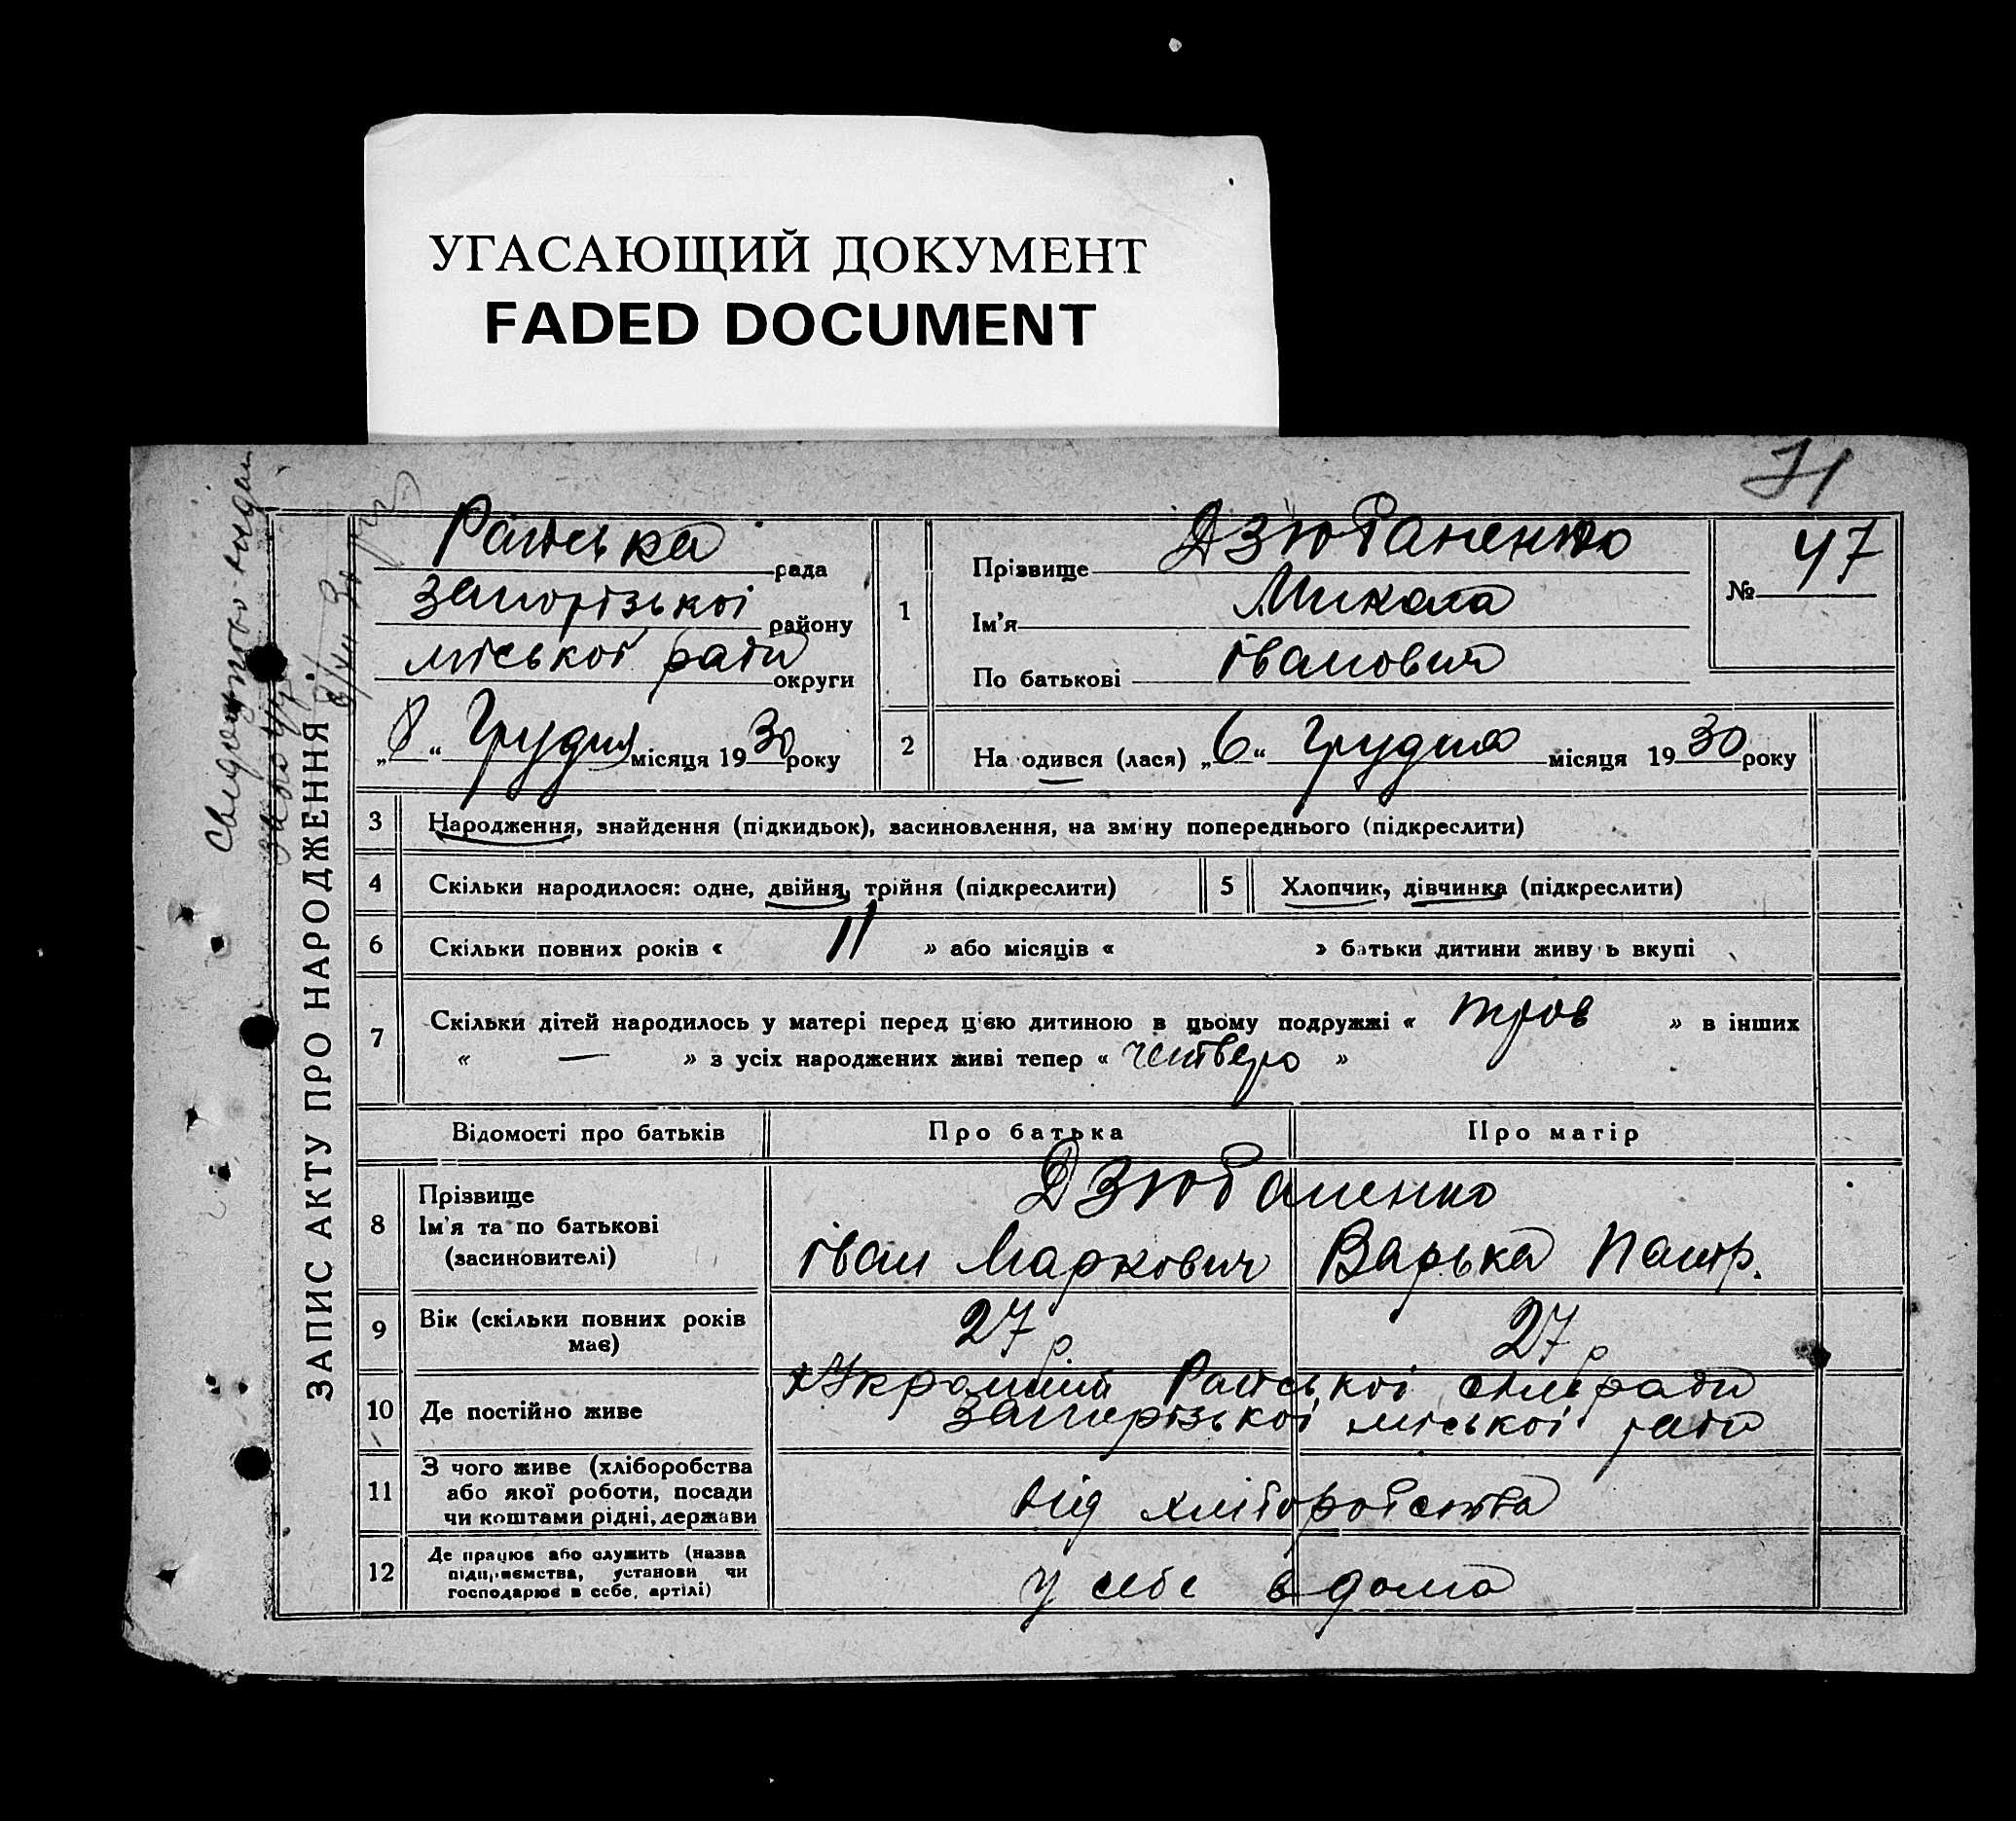 УГАСАЮЩИЙ ДОКУМЕНТ
FADED DOCUMENT
71
ЗАПИС АКТУ ПРО НАРОДЖЕННЯ.
Райська рада
Запорізької району
міської ради округи
„8“ Грудня місяця 1930 року
1
Прізвище Дзюбаненко
Ім'я Микола
По батькові Іванович
№ 47
2
На одився (лася) „6“ Грудня місяця 1930 року
3 Народження, знайдення (підкидьок), засиновлення, на зміну попереднього (підкреслити)
4 Скільки народилося: одне, двійня, трійня (підкреслити) 5 Хлопчик, дівчинка (підкреслити)
6 Скільки повних років « 11 » або місяців « » батьки дитини живу ь вкупі
7 Скільки дітей народилось у матері перед цією дитиною в цьому подружжі « троє » в інших
« — » з усіх народжених живі тепер « четверо »
Відомості про батьків Про батька Про матір
8 Прізвище
Ім'я та по батькові
(засиновителі)
Дзюбаненко
Іван Маркович Варька Патр.
9 Вік (скільки повних років
має)
27 р 27 р
10 Де постійно живе
Райської сільради
Запорізької міської ради
11 З чого живе (хліборобства
або якої роботи, посади
чи коштами рідні, держави
від хліборобства
12 Де працює або служить (назва
підприємства, установи чи
господарює в себе, артілі)
у себе вдома